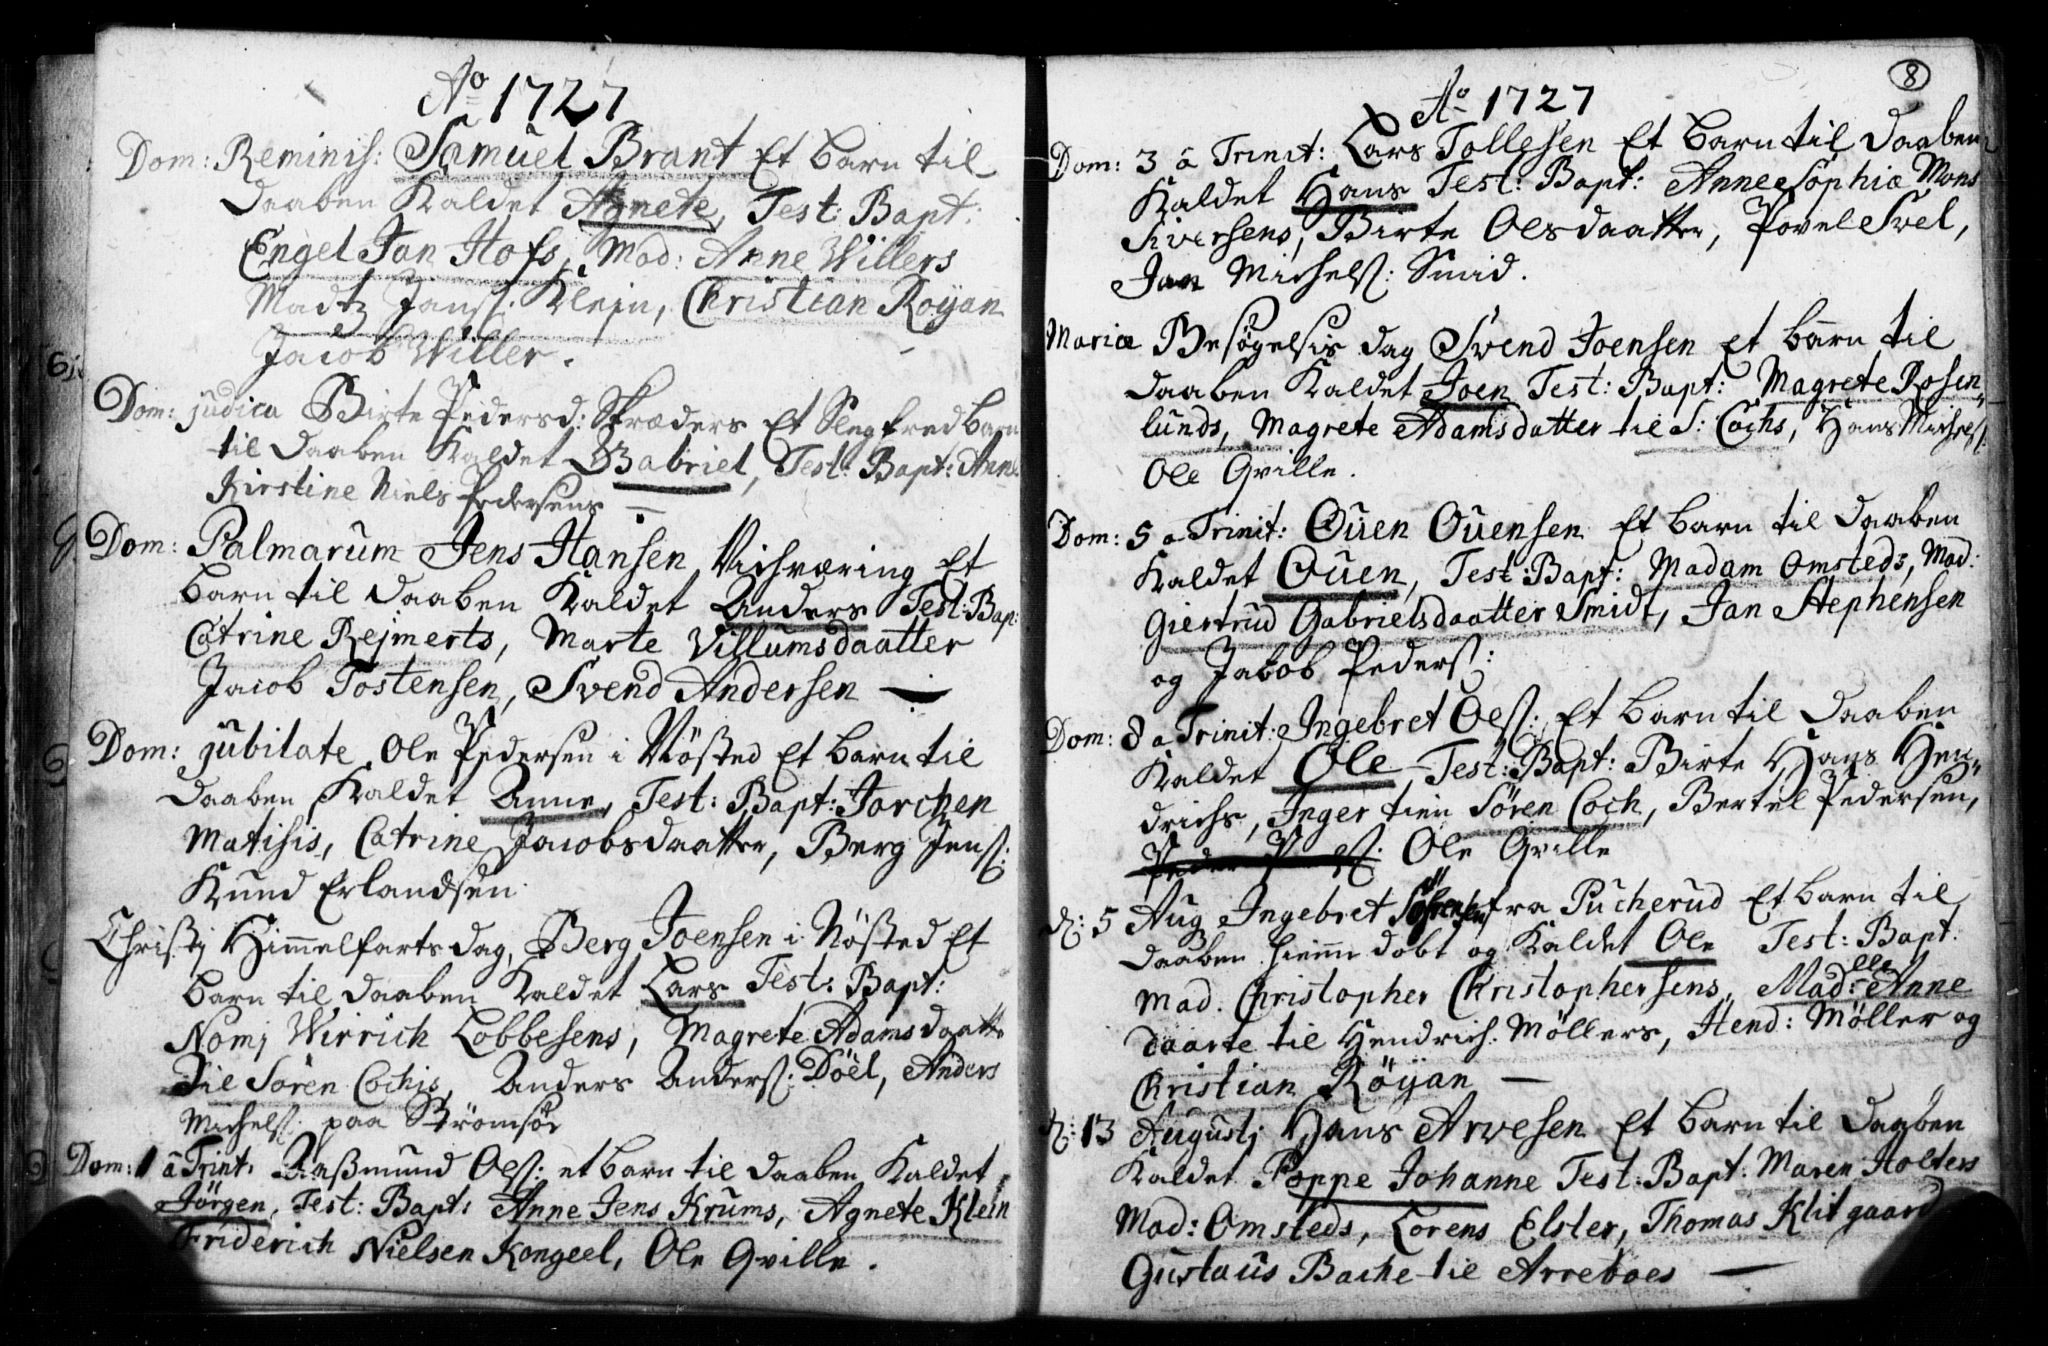 Ao 1727
Dom: Reminis: Samuel Brant Et barn til
daaben kaldet Agnete, Test: Bapt:
Engel Jan Hofs, Mad: Anne Willers
Madtz Jans: Klejn, Christian Roÿan
Jacob Willer.
Dom: judica Birte Pedersd: Skræders Et Slegfred barn
til daaben kaldet Gabriel, Test: Bapt: Anne
Kirstine Niels Pedersens
Dom: Palmarum Jens Hansen Vichværing Et
barn til daaben kaldet Anders Test: Bap:
Catrine Rejmerts, Marte Villumsdaatter
Jacob Tostensen, Svend Andersen
Dom: jubilate Ole Pedersen i Nøsted Et barn til
daaben kaldet Anne, Test: Bapt: Jorchen
Matisis, Catrine Jacobsdaatter, Berg Jens:
Knud Erlandsen
Christj Himmelfarts dag, Berg Joensen i Nøsted Et
barn til daaben kaldet Lars Test: Bapt:
Nomj Wirrich Lobbesens, Magrete Adamsdaatter
til Sören Cochis, Anders Anders: Döel, Anders
Michels: paa Strömsöe
Dom: 1 a Trinit: Aasmund Ols: et barn til daaben kaldet
Jörgen, Test: Bapt: Anne Jens Krums, Agnete Klein
Friderich Nielsen Kongeel, Ole Qville.
8
Ao 1727
Dom: 3 a Trinit: Lars Tollesen Et barn til daaben
kaldet Hans Test: Bapt: Anne Sophia Mons
Siversens, Birte Olsdaatter, Povel Svel,
Jan Michels: Smid.
Mariæ Besøgelsis dag Svend Joensen et barn til
daaben kaldet Joen Test: Bapt: Magrete Rosen
lunds, Magrete Adamsdatter til S: Cochs, Hans Michels:
Ole Qville.
Dom: 5 a Trinit: Ouen Ouensen Et barn til daaben
kaldet Ouen, Test: Bapt: Madam Omsteds, Mad:
Giertrud Gabrielsdaatter Smidt, Jan Stephensen
og Jacob Peders:
Dom: 8 a Trinit: Ingebret Ols: Et barn til daaben
kaldet Ole Test: Bapt: Birte Hans Hen
drichs, Inger tien Sören Coch, Bertel Pedersen,
Ole Qville
d: 5 Aug Ingebret Sörensen fra Pucherud Et barn til
daaben hiemme døbt og kaldet Ole Test: Bapt:
Mad. Christopher Christophersens, Madelle: Anne
Daarte til Hendrich Möllers, Hend: Möller og
Christian Röÿan
d: 13 Augustj Hans Arvesen Et barn til daaben
kaldet Poppe Johanne Test: Bapt: Maren Holters
Mad: Omsteds, Lorens Elster, Thomas Klitgaard
Gustaus Bache til Arreboes